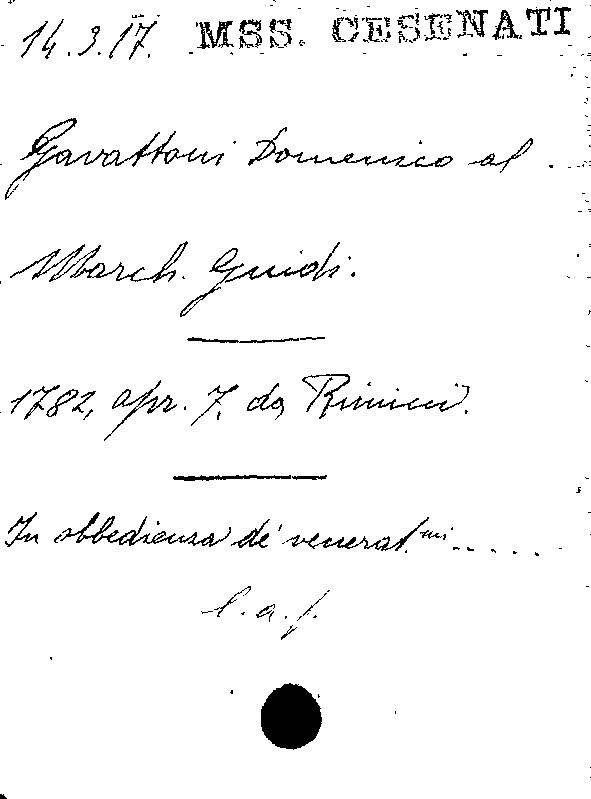 14.3.17. MSS. CESENATI
Gavattoni Domenico al
March. Guidi.
1782, apr. 7, da Rimini.
In obbedienza de' venerat.mi.....
l. a. f.